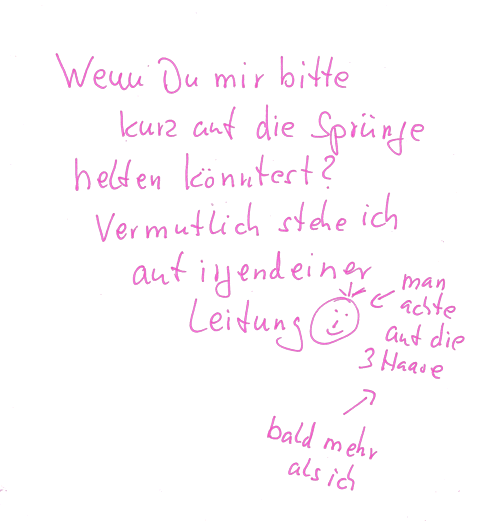 Wenn Du mir bitte
kurz auf die Sprünge
helfen könntest?
Vermutlich stehe ich
auf irgendeiner
Leitung
man
achte
auf die
3 Haare
bald mehr
als ich